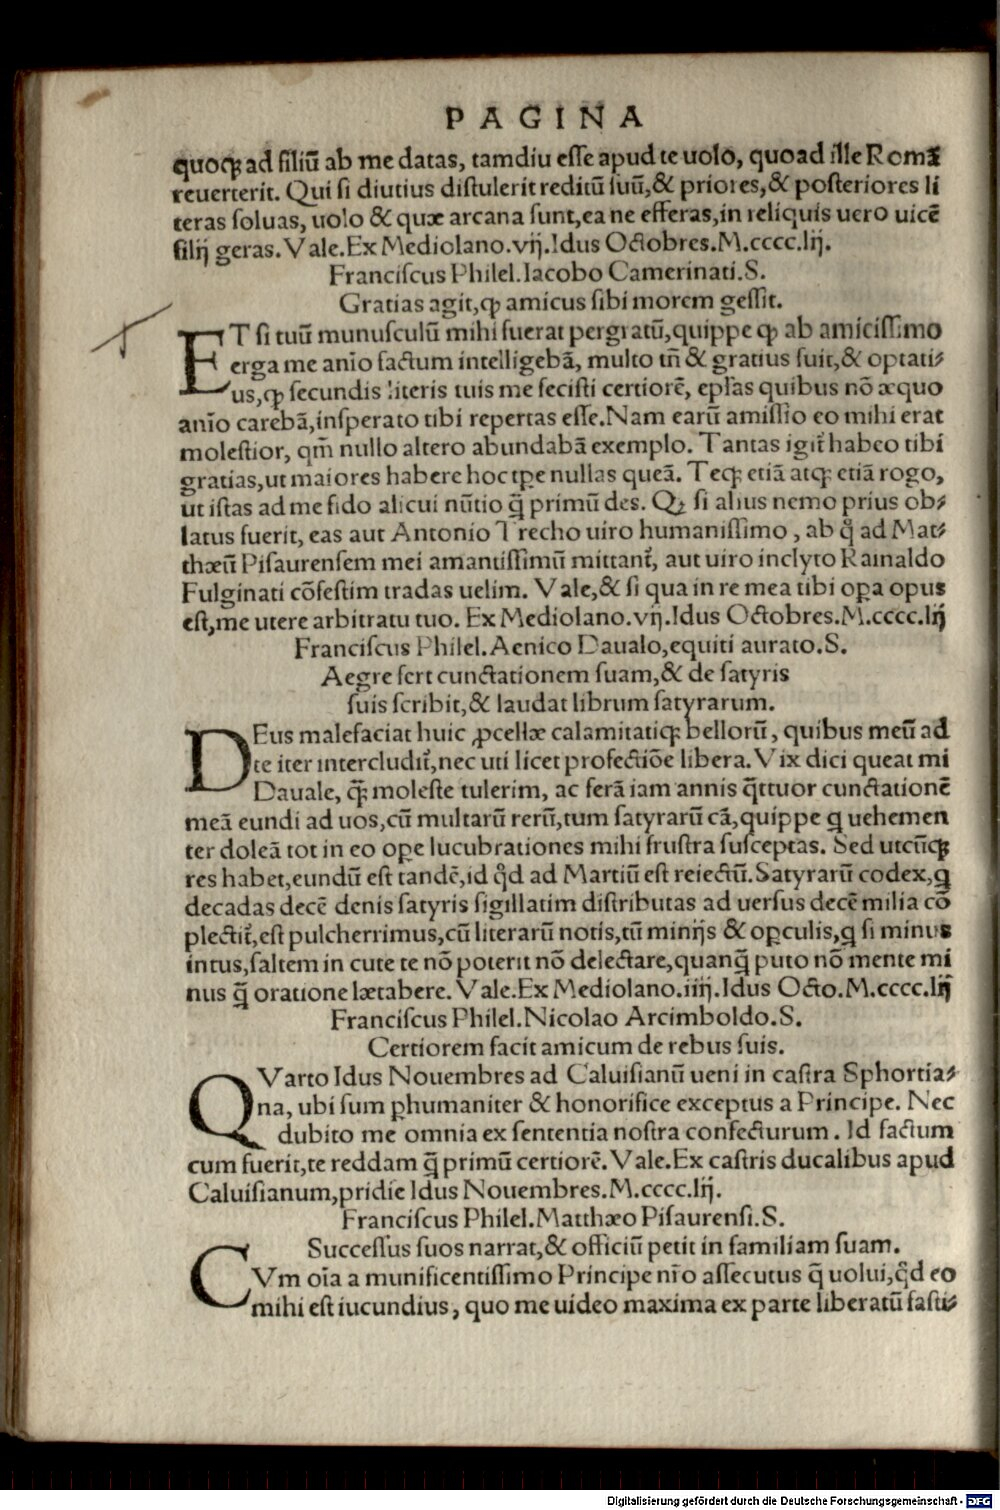 PAGINA
quoqꝫ ad filiū ab me datas, tamdiu esse apud te uolo, quoad ille Romā
reuerterit. Qui si diutius distulerit reditū suū,& priores,& posteriores li
teras soluas, uolo & quæ arcana sunt,ea ne efferas,in reliquis uero uicē
filij geras. Vale.Ex Mediolano.vij.Idus Octobres.M.cccc.lij.
Franciscus Philel.Iacobo Camerinati.S.
Gratias agit,ꝙ amicus sibi morem gessit.
ET si tuū munusculū mihi fuerat pergratū,quippe ꝙ ab amicissimo
erga me aīo factum intelligebā, multo tñ & gratius fuit,& optati⸗
us,ꝙ secundis literis tuis me fecisti certiorē, epl̄as quibus nō æquo
aīo carebā,insperato tibi repertas esse.Nam earū amissio eo mihi erat
molestior, qm̄ nullo altero abundabā exemplo. Tantas igit᷑ habeo tibi
gratias,ut maiores habere hoc tꝑe nullas queā. Teqꝫ etiā atqꝫ etiā rogo,
ut istas ad me fido alicui nūtio q̄ primū des. Qꝫ si alius nemo prius ob⸗
latus fuerit, eas aut Antonio Trecho uiro humanissimo , ab q̊ ad Mat⸗
thæū Pisaurensem mei amantissimū mittant᷑, aut uiro inclyto Rainaldo
Fulginati cōfestim tradas uelim. Vale,& si qua in re mea tibi oꝑa opus
est,me utere arbitratu tuo. Ex Mediolano.vij.Idus Octobres.M.cccc.lij
Franciscus Philel.Aenico Daualo,equiti aurato.S.
Aegre fert cunctationem suam,& de satyris
suis scribit,& laudat librum satyrarum.
DEus malefaciat huic ꝓcellæ calamitatiqꝫ bellorū, quibus meū ad
te iter intercludit᷑,nec uti licet profectiōe libera.Vix dici queat mi
Davale, q̄ꝫ moleste tulerim, ac ferā iam annis q̄ttuor cunctationē
meā eundi ad uos,cū multarū rerū,tum satyrarū cā,quippe q uehemen
ter doleā tot in eo oꝑe lucubrationes mihi frustra susceptas. Sed utcūqꝫ
res habet,eundū est tandē,id qd̄ ad Martiū est reiectū.Satyrarū codex,q
decadas decē denis satyris sigillatim distributas ad uersus decē milia cō
plectit᷑,est pulcherrimus,cū literarū notis,tū minijs & oꝑculis,q si minus
intus,saltem in cute te nō poterit nō delectare,quanq̄ puto nō mente mi
nus q̄ oratione lætabere. Vale.Ex Mediolano.iiij.Idus Octo.M.cccc.lij
Franciscus Philel.Nicolao Arcimboldo.S.
Certiorem facit amicum de rebus suis.
QVarto Idus Nouembres ad Caluisianū ueni in castra Sphortia⸗
na, ubi sum ꝑhumaniter & honorifice exceptus a Principe. Nec
dubito me omnia ex sententia nostra confecturum. Id factum
cum fuerit,te reddam q̄ primū certiorē. Vale.Ex castris ducalibus apud
Caluisianum,pridie Idus Nouembres.M.cccc.lij.
Franciscus Philel.Matthæo Pisaurensi.S.
Successus suos narrat,& officiū petit in familiam suam.
CVm oīa a munificentissimo Principe nr̄o assecutus q̄ uolui,qd̄ eo
mihi est iucundius, quo me uideo maxima ex parte liberatū fasti⸗
Digitalisierung gefördert durch die Deutsche Forschungsgemeinschaft - DFG